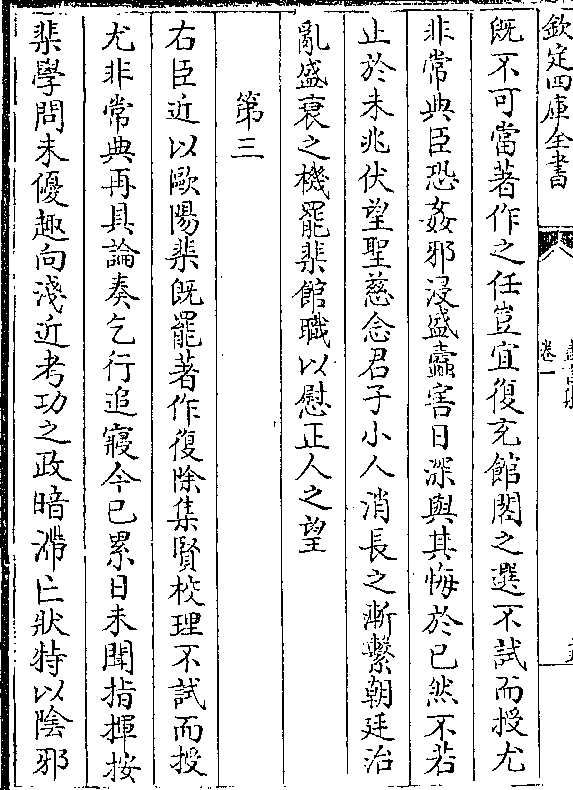 欽定四庫全書
卷一
既不可當著作之任豈宜復充館閣之選不試而授尤
非常典臣恐姦邪浸盛蠧害日深與其悔於已然不若
止於未兆伏望聖慈念君子小人消長之漸繫朝廷治
亂盛衰之機罷棐館職以慰正人之望
第三
右臣近以歐陽棐既罷著作復除集賢校理不試而授
尤非常典再具論奏乞行追寢今已累日未聞指揮按
棐學問未優趣向淺近考功之政暗滯亡狀特以陰邪